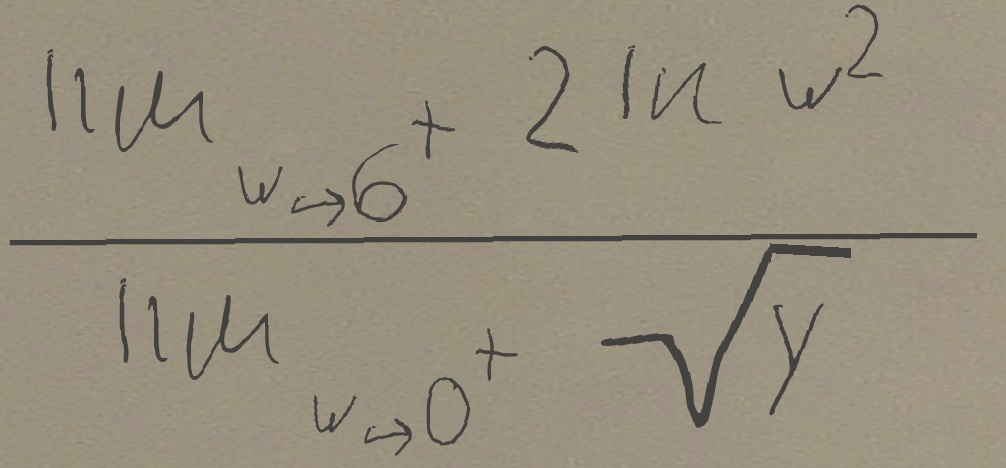 \frac{\lim_{w \to 6^+} 2 \ln w^2}{\lim_{w \to 0^+} \sqrt{y}}